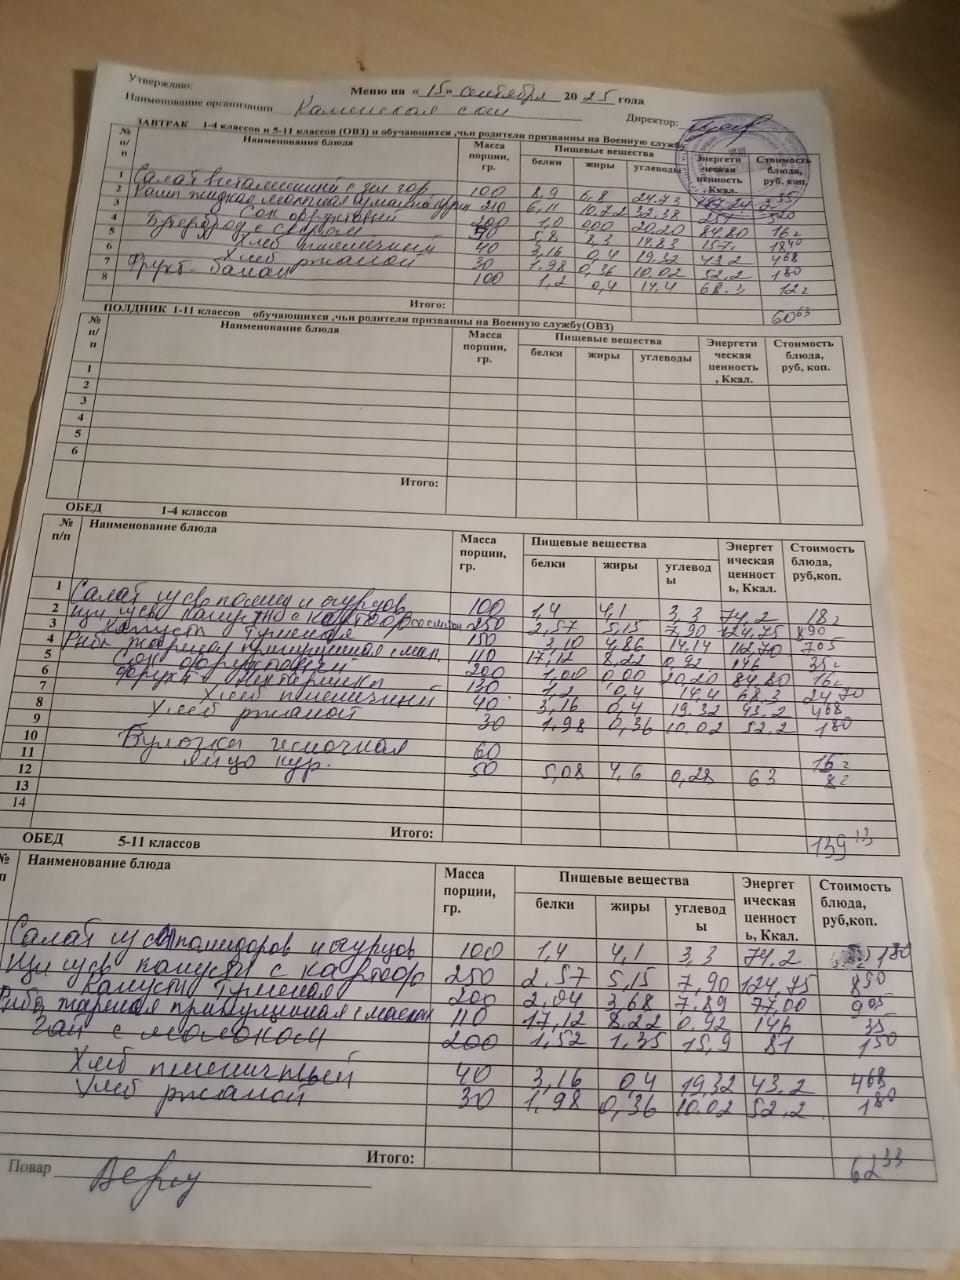 Утверждаю:
Меню на «15» сентября 2025 года
Наименование организации Каменская сош Директор:
ЗАВТРАК 1-4 классов и 5-11 классов (ОВЗ) и обучающихся ,чьи родители призванны на Военную службу
№ п/п Наименование блюда Масса порции, гр. Пищевые вещества Энергети ческая ценность , Ккал. Стоимость блюда, руб, коп.
белки жиры углеводы
1 Салат витаминный с зел гор 100 8,9 6,8 24.73
2 Каша жидкая молочная 210 6,11 10.72 32.38 251
3 Сок фруктовый 200 1,0 0,00 20,20 84.80 16
4 Бутерброд с сыром 5.8 8,3 14.83 18 40
5 Хлеб пшеничный 40 3,16 0,4 19.32 43.2 4 68
6 Хлеб ржаной 30 1.98 0,36 10.02 52.2 1 80
7 Фрукт банан 100 1,2 0,4 14.4 68.3 12
8
Итого: 60 63
ПОЛДНИК 1-11 классов обучающихся ,чьи родители призванны на Военную службу(ОВЗ)
№ п/п Наименование блюда Масса порции, гр. Пищевые вещества Энергети ческая ценность , Ккал. Стоимость блюда, руб, коп.
белки жиры углеводы
1
2
3
4
5
6
Итого:
ОБЕД 1-4 классов
№ п/п Наименование блюда Масса порции, гр. Пищевые вещества Энергет ическая ценност ь, Ккал. Стоимость блюда, руб,коп.
белки жиры углевод ы
1 Салат из св помид и огурцов 100 1,4 4,1 3,3 74,2 18
2 Щи из св капусты с картоф со сметан 250 2,57 5,15 7,90 124,75 8 90
3 Капуста тушеная 150 3,10 4,86 14,14 112,70 7 05
4 Рыба жареная припущенная с мас. 110 17,12 8,22 0,92 146 35
5 Сок фруктовый 200 1,00 0,00 20,20 84.80 16
6 Фрукт 130 1,2 0,4 14.4 68.3 24 70
7 Хлеб пшеничный 40 3,16 0,4 19.32 43.2 4 68
8 Хлеб ржаной 30 1.98 0,36 10.02 52.2 1 80
9
10 Булочка 60 16
11 яйцо кур. 50 5,08 4,6 0,28 63 8
12
13
14
Итого: 139 13
ОБЕД 5-11 классов
№ п Наименование блюда Масса порции, гр. Пищевые вещества Энергет ическая ценност ь, Ккал. Стоимость блюда, руб,коп.
белки жиры углевод ы
Салат из св помидоров и огурцов 100 1,4 4,1 3,3 74,2 1 80
Щи из св капусты с картоф 250 2,57 5,15 7,90 124,75 8 50
Капуста тушеная 200 2,04 3,68 7.89 77,00 9 05
Рыба жареная припущенная с маслом 110 17,12 8.22 0.92 146 35
Чай с молоком 200 1,52 1,35 15,9 81 1 50
Хлеб пшеничный 40 3,16 0,4 19,32 43.2 4 68
Хлеб ржаной 30 1,98 0,36 10.02 52,2 1 80
Итого: 62 33
Повар